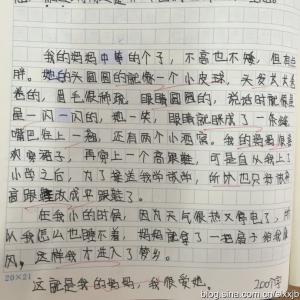 我的妈妈中等的个子，不高也不矮，但有点
胖。她的头圆圆的就像一个小皮球，头发大大
卷的，眉毛很稀疏，眼睛圆圆的，说话时就像星
星一闪一闪的，她一笑，眼睛就眯成了一条缝，
嘴巴往上一翘，还有两个小酒窝。我的妈妈很喜
欢穿裙子，再穿上一个高跟鞋，可是自从我上了
小学之后，为了接送我学，所以也只好把
高跟鞋改成平跟鞋了。
在我小的时候，因为天气很热又停电了，所
以我怎么也睡不着，妈妈就拿了一把扇子给我扇
风，这样我才进入了梦乡。
这就是我的妈妈，我很爱她。 200字
20×21
blog.sina.com.cn/xxjb